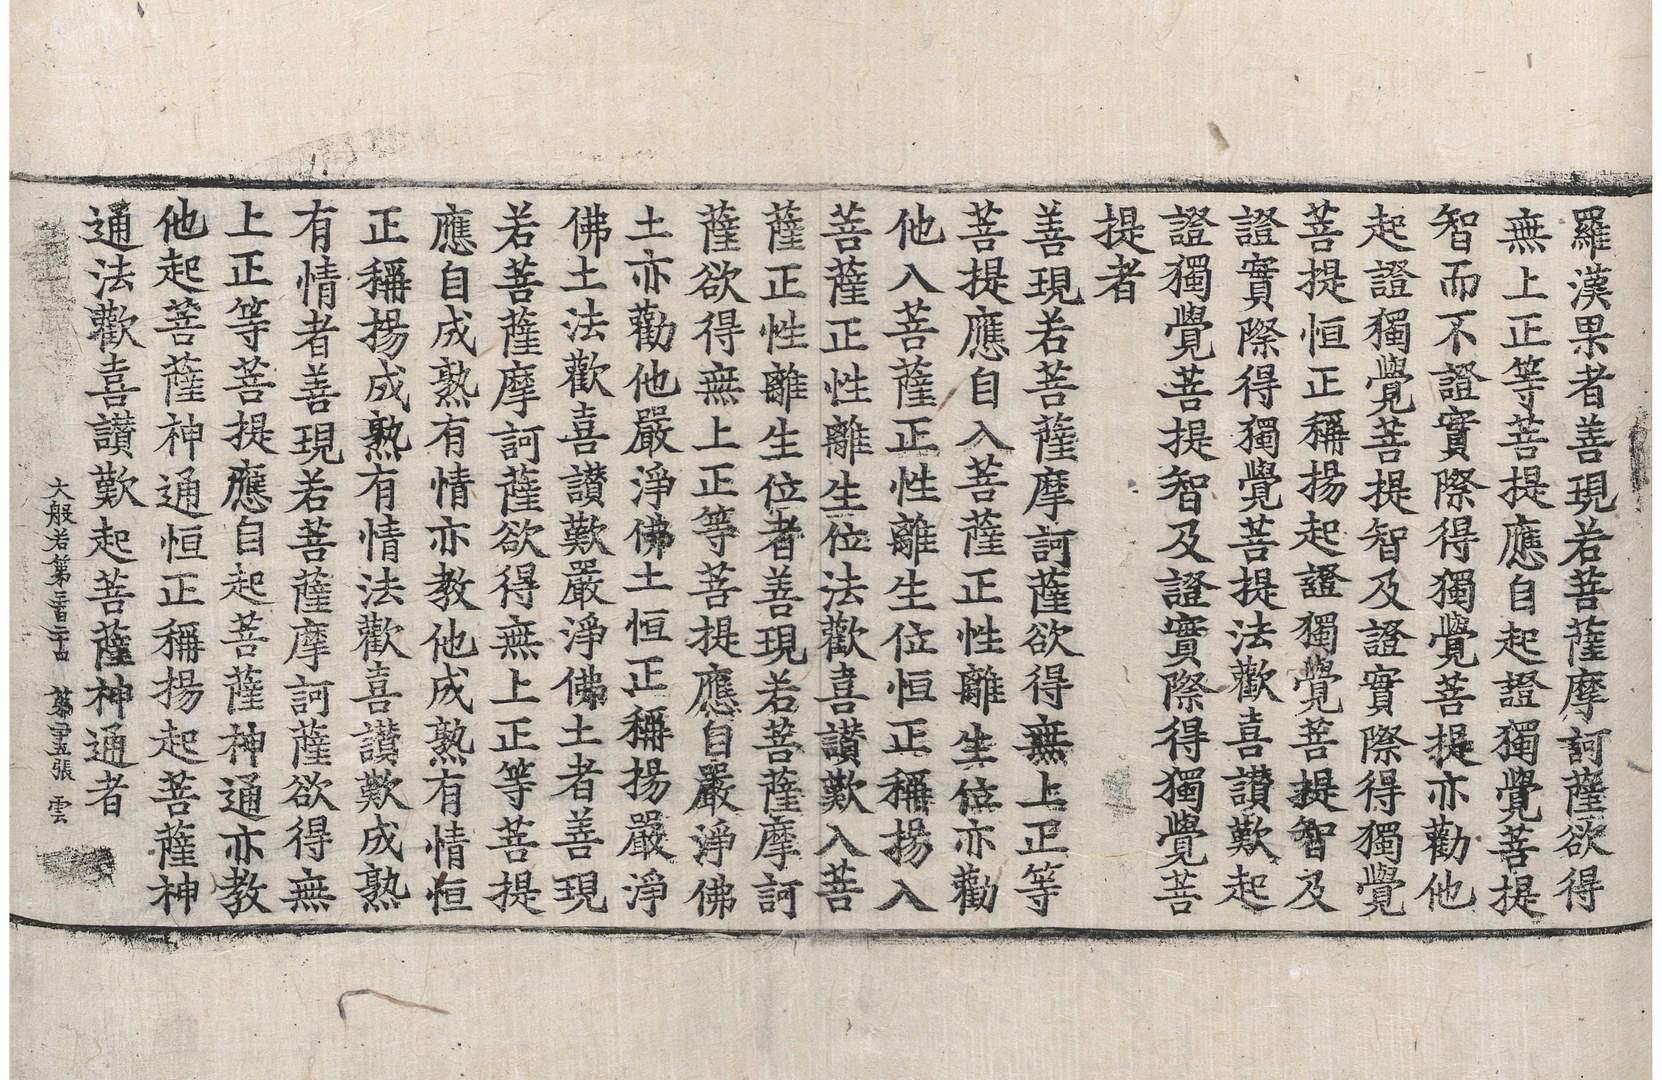 羅漢果者善現若菩薩摩訶薩欲得
無上正等菩提應自起證獨覺菩提
智而不證實際得獨覺菩提亦勸他
起證獨覺菩提智及證實際得獨覺
菩提恒正稱揚起證獨覺菩提智及
證實際得獨覺菩提法歡喜讃歎起
證獨覺菩提智及證實際得獨覺菩
提者
善現若菩薩摩訶薩欲得無上正等
菩提應自入菩薩正性離生位亦勸
他入菩薩正性離生位恒正稱揚入
菩薩正性離生位法歡喜讃歎入菩
薩正性離生位者善現若菩薩摩訶
薩欲得無上正等菩提應自嚴淨佛
土亦勸他嚴淨佛土恒正稱揚嚴淨
佛土法歡喜讃歎嚴淨佛土者善現
若菩薩摩訶薩欲得無上正等菩提
應自成熟有情亦教他成熟有情恒
正稱揚成熟有情法歡喜讃歎成熟
有情者善現若菩薩摩訶薩欲得無
上正等菩提應自起菩薩神通亦教
他起菩薩神通恒正稱揚起菩薩神
通法歡喜讃歎起菩薩神通者
大般若第三百二十四 第十五張 雲